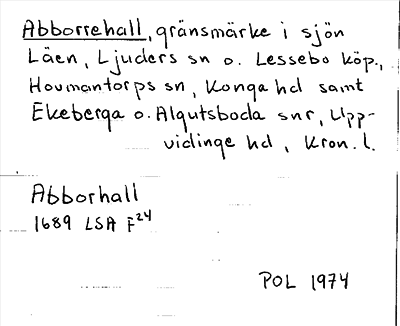 Abborrehall, gränsmärke i sjön
Läen, Ljuders sn o. Lessebo köp.,
Hovmantorps sn, Konga hd samt
Ekeberga o. Algutsboda snr, Upp-
vidinge hd, Kron. l.
Abborhall
1689 LSA F24
POL 1974